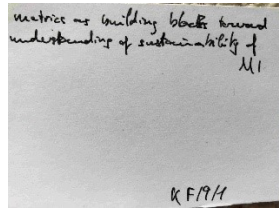 metrics as building blocks toward
understanding of sustainability of
MI
KF/9/1